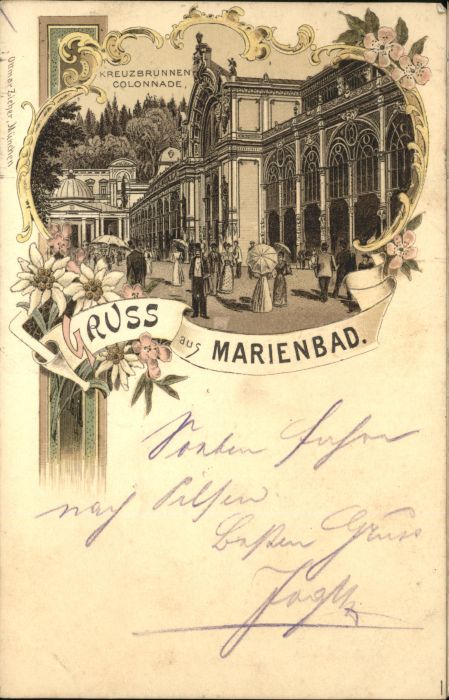 KREUZBRUNNEN
COLONNADE,
Ottmar Zieher, München
GRUSS
aus MARIENBAD.
fahren
nach Pilsen
Besten Gruss